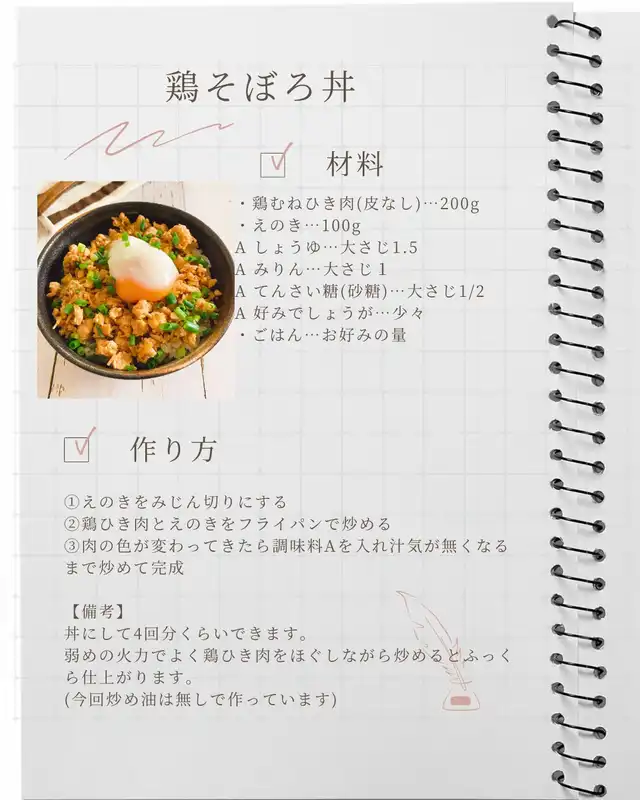 鶏そぼろ丼
材料
・鶏むねひき肉(皮なし)…200g
・えのき…100g
A しょうゆ…大さじ1.5
A みりん…大さじ１
A てんさい糖(砂糖)…大さじ1/2
A 好みでしょうが…少々
・ごはん…お好みの量
作り方
①えのきをみじん切りにする
②鶏ひき肉とえのきをフライパンで炒める
③肉の色が変わってきたら調味料Aを入れ汁気が無くなる
まで炒めて完成
【備考】
丼にして4回分くらいできます。
弱めの火力でよく鶏ひき肉をほぐしながら炒めるとふっく
ら仕上がります。
(今回炒め油は無しで作っています)